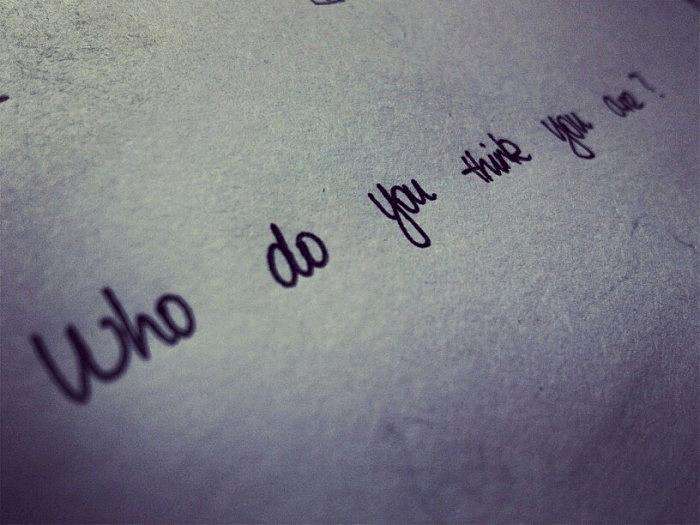 Who do you think you are?